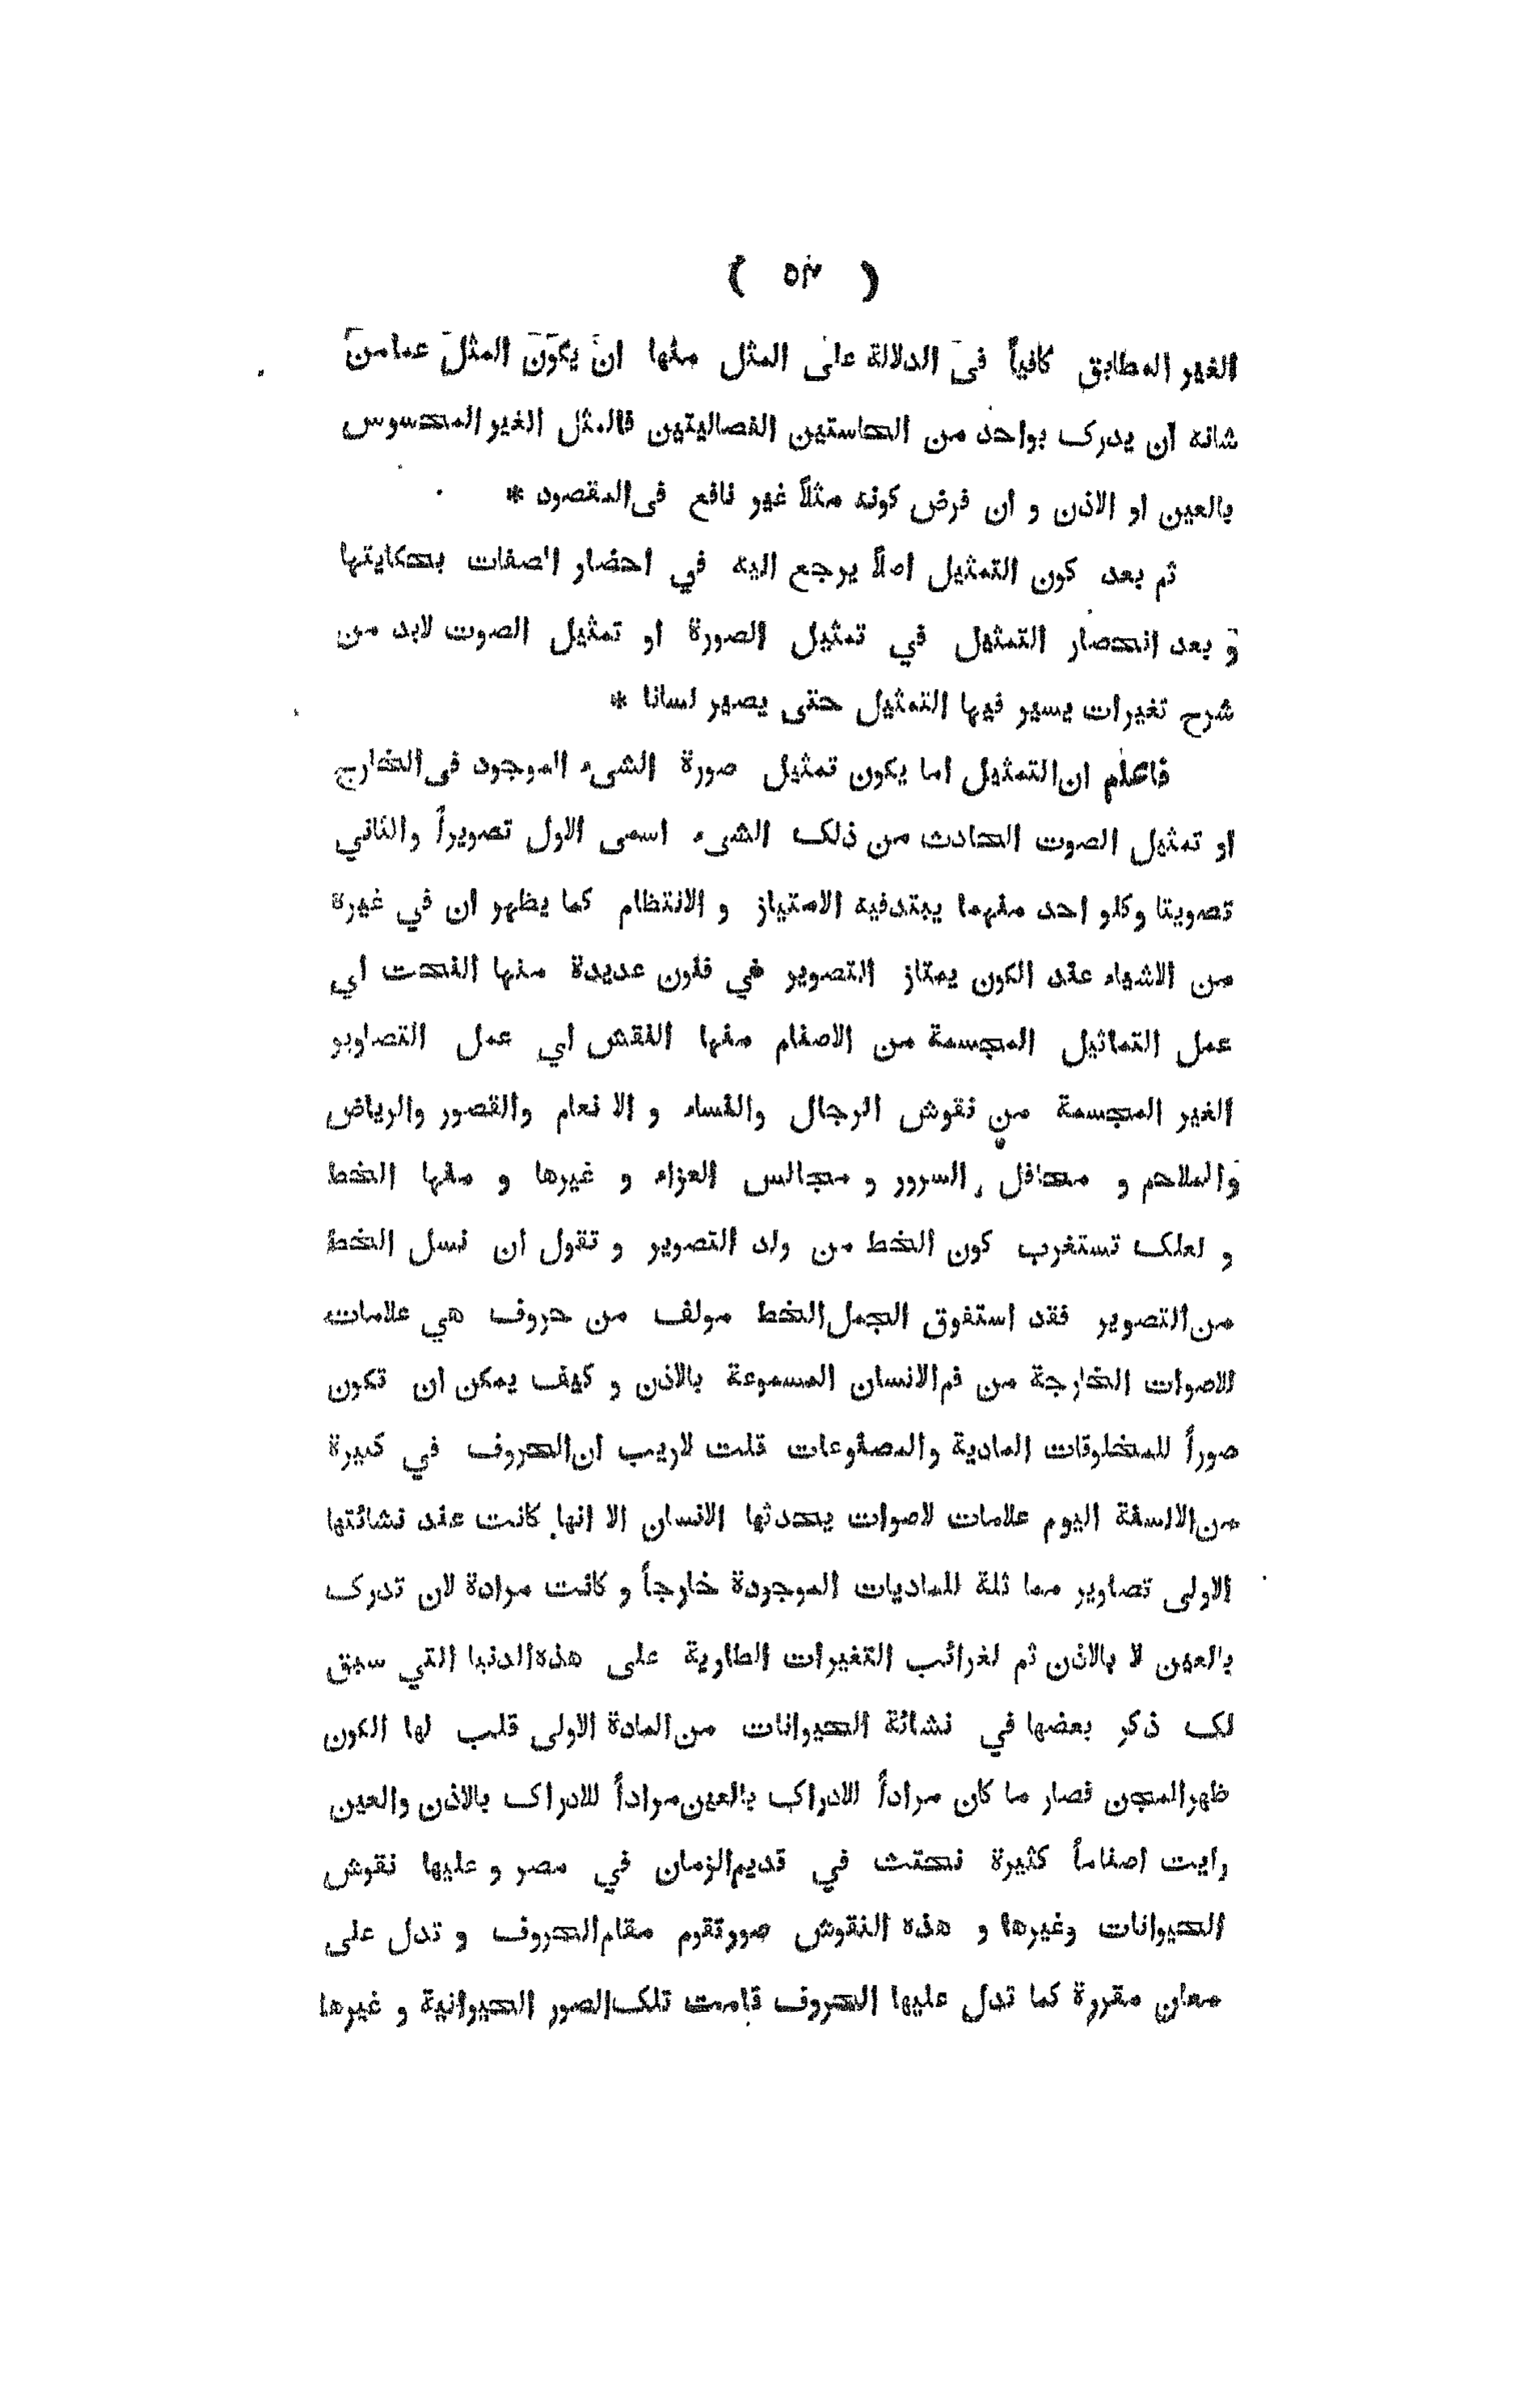 ( ٥٣ )
الغير المطابق كافياً فى الدلالة على المثل منها ان يكون المثل عمامن
شانه ان يدرک بواحد من الحاستين الفصاليتين فالمثل الغير المحسوس
بالعين او الاذن و ان فرض كونه مثلاً غير نافع فى المقصود *
ثم بعد كون التمثيل اصلاً يرجع اليه في احضار الصفات بحكايتها
و بعد انحصار التمثيل في تمثيل الصورة او تمثيل الصوت لابد من
شرح تغيرات يسير فيها التمثيل حتى يصير لسانا *
فاعلم ان التمثيل اما يكون تمثيل صورة الشىء الموجود فى الخارج
او تمثيل الصوت الحادث من ذلک الشىء اسمى الاول تصويراً والثاني
تصويتا وكلو احد منهما يبتدفيه الامتياز و الانتظام كما يظهر ان في غيرة
من الاشياء عند الكون يمتاز التصوير في فنون عديدة منها النحت اي
عمل التماثيل المجسمة من الاصنام منها النقش اي عمل التصاوير
الغير المجسمة من نقوش الرجال والنساء و الا نعام والقصور والرياض
والملاحم و محافل السرور و مجالس العزاء و غيرها و منها الخط
و لعلک تستغرب كون الخط من ولد التصوير و تقول ان نسل الخط
من التصوير فقد استنوق الجمل الخط مولف من حروف هي علامات
للاصوات الخارجة من فم الانسان المسموعة بالاذن و كيف يمكن ان تكون
صوراً للمخلوقات المادية والمصنوعات قلت لاريب ان الحروف في كبيرة
من الالسنة اليوم علامات لاصوات يحدثها الانسان الا انها كانت عند نشائتها
الاولى تصاوير مما ثلة للماديات الموجودة خارجاً و كانت مرادة لان تدرک
بالعين لا بالاذن ثم لغرائب التغيرات الطارية على هذه الدنيا التي سبق
لک ذكر بعضها في نشائة الحيوانات من المادة الاولى قلب لها الكون
ظهر المجن فصار ما كان مراداً للادراک بالعين مراداً للادراک بالاذن والعين
رايت اصناماً كثيرة نحتت في قديم الزمان في مصر و عليها نقوش
الحيوانات وغيرها و هذه النقوش صور تقوم مقام الحروف و تدل على
معان مقررة كما تدل عليها الحروف قامت تلک الصور الحيوانية و غيرها